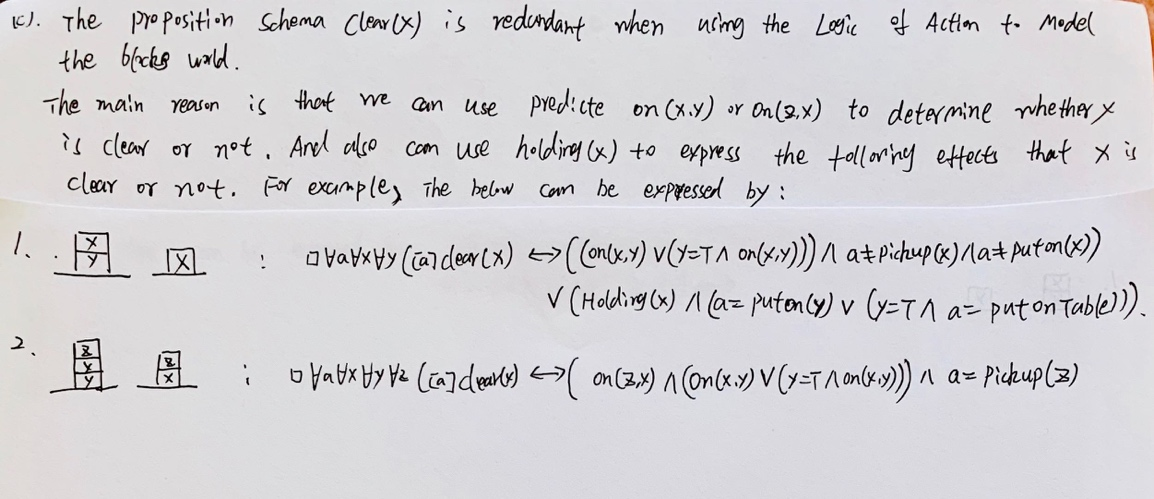 (c). The proposition Schema Clear(x) is redundant when using the Logic of Action to Model
the blocks world.
The main reason is that we can use predicte on(x,y) or on(z,x) to determine whether x
is clear or not. And also can use holding(x) to express the following effects that x is
clear or not. For example, The below can be expressed by:
1. x y x : □∀a∀x∀y([a]clear(x) ↔ ((on(x,y) ∨ (y=T ∧ on(x,y))) ∧ a≠pickup(x) ∧ a≠puton(x))
∨ (Holding(x) ∧ (a= puton(y) ∨ (y=T ∧ a= putonTable))).
2. z x y z x : □∀a∀x∀y∀z([a]clear(x) ↔ ( on(z,x) ∧ (on(x,y) ∨ (y=T ∧ on(x,y))) ∧ a= Pickup(z)